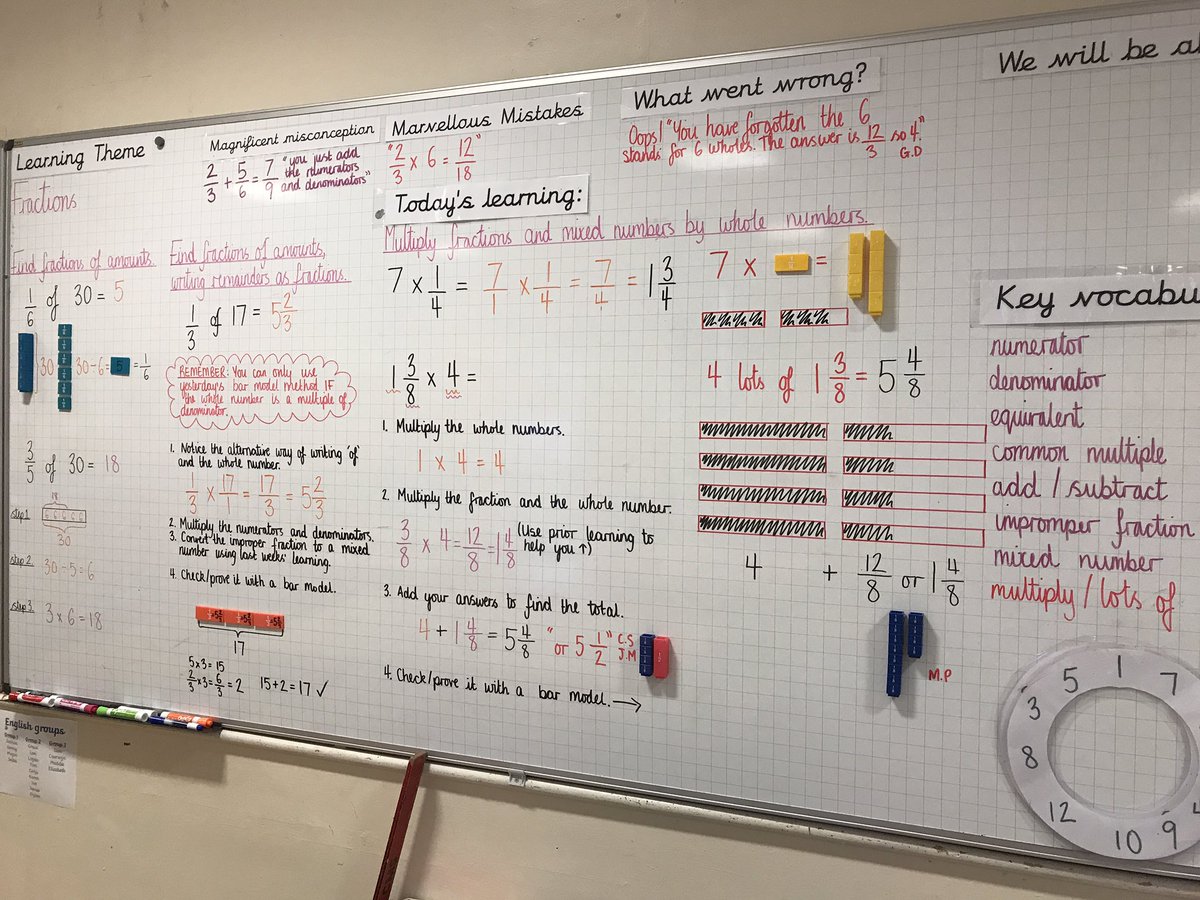 Learning Theme
Fractions
Find fractions of amounts.
1/6 of 30 = 5
30
30-6= 5 = 1/6
3/5 of 30 = 18
step 1
18
6 6 6 6 6
30
step 2.
30-5=6
step 3.
3 x 6 = 18
Magnificent misconception
2/3 + 5/6 = 7/9 "you just add
the numerators
and denominators"
Find fractions of amounts,
writing remainders as fractions.
1/3 of 17 = 5 2/3
REMEMBER: You can only use
yesterdays bar model method IF
the whole number is a multiple of
denominator.
1. Notice the alternative way of writing 'of'
and the whole number.
1/3 x 17/1 = 17/3 = 5 2/3
2. Multiply the numerators and denominators.
3. Convert the improper fraction to a mixed
number using last weeks' learning.
4. Check/prove it with a bar model.
17
5x3=15
2/3 x3= 6/3 = 2 15+2=17 ✓
Marvellous Mistakes
"2/3 x 6 = 12/18"
What went wrong?
Oops! "You have forgotten the 6
stands for 6 wholes. The answer is 12/3 so 4."
G.D
Today's learning:
Multiply fractions and mixed numbers by whole numbers.
7 x 1/4 = 7/1 x 1/4 = 7/4 = 1 3/4
1 3/8 x 4 =
1. Multiply the whole numbers.
1 x 4 = 4
2. Multiply the fraction and the whole number.
3/8 x 4 = 12/8 = 1 4/8 (Use prior learning to
help you ↑)
3. Add your answers to find the total.
4 + 1 4/8 = 5 4/8 "or 5 1/2" C.S
J.M
4. Check/prove it with a bar model. →
7 x =
4 lots of 1 3/8 = 5 4/8
4 + 12/8 or 1 4/8
M.P
We will be
Key vocabu
numerator
denominator
equivalent
common multiple
add / subtract
impromper fraction
mixed number
multiply / lots of
5 1 7
3
8
12 10 9 4
English groups
Group 1 Group 2 Group 3